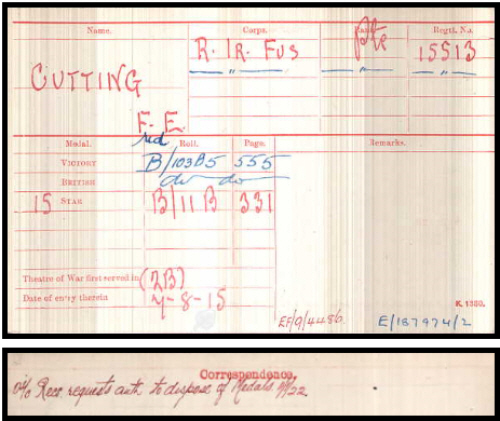 Name. Corps. Rank. Regtl. No.
R. IR. FUS Pte 15513
" " "
CUTTING
F. E.
Medal. Roll. Page. Remarks.
VICTORY B/103B5 555
BRITISH do do
15 STAR B/11 B 331
Theatre of War first served in (2B)
Date of entry therein 7-8-15
K. 1380.
EF/9/4486. E/187974/2
Correspondence.
O i/c Recs. requests auth. to dispose of Medals